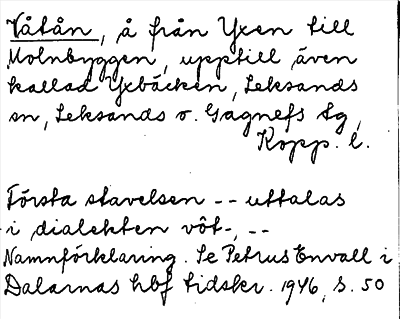 Våtån, å från Yxen till
Molnbyggen, upptill även
kallad Yxbäcken, Leksands
sn, Leksands o. Gagnefs tg,
Kopp. l.
Första stavelsen -- uttalas
i dialekten vôt-, --
Namnförklaring. Se Petrus Envall i
Dalarnas hbf tidskr. 1946, s. 50